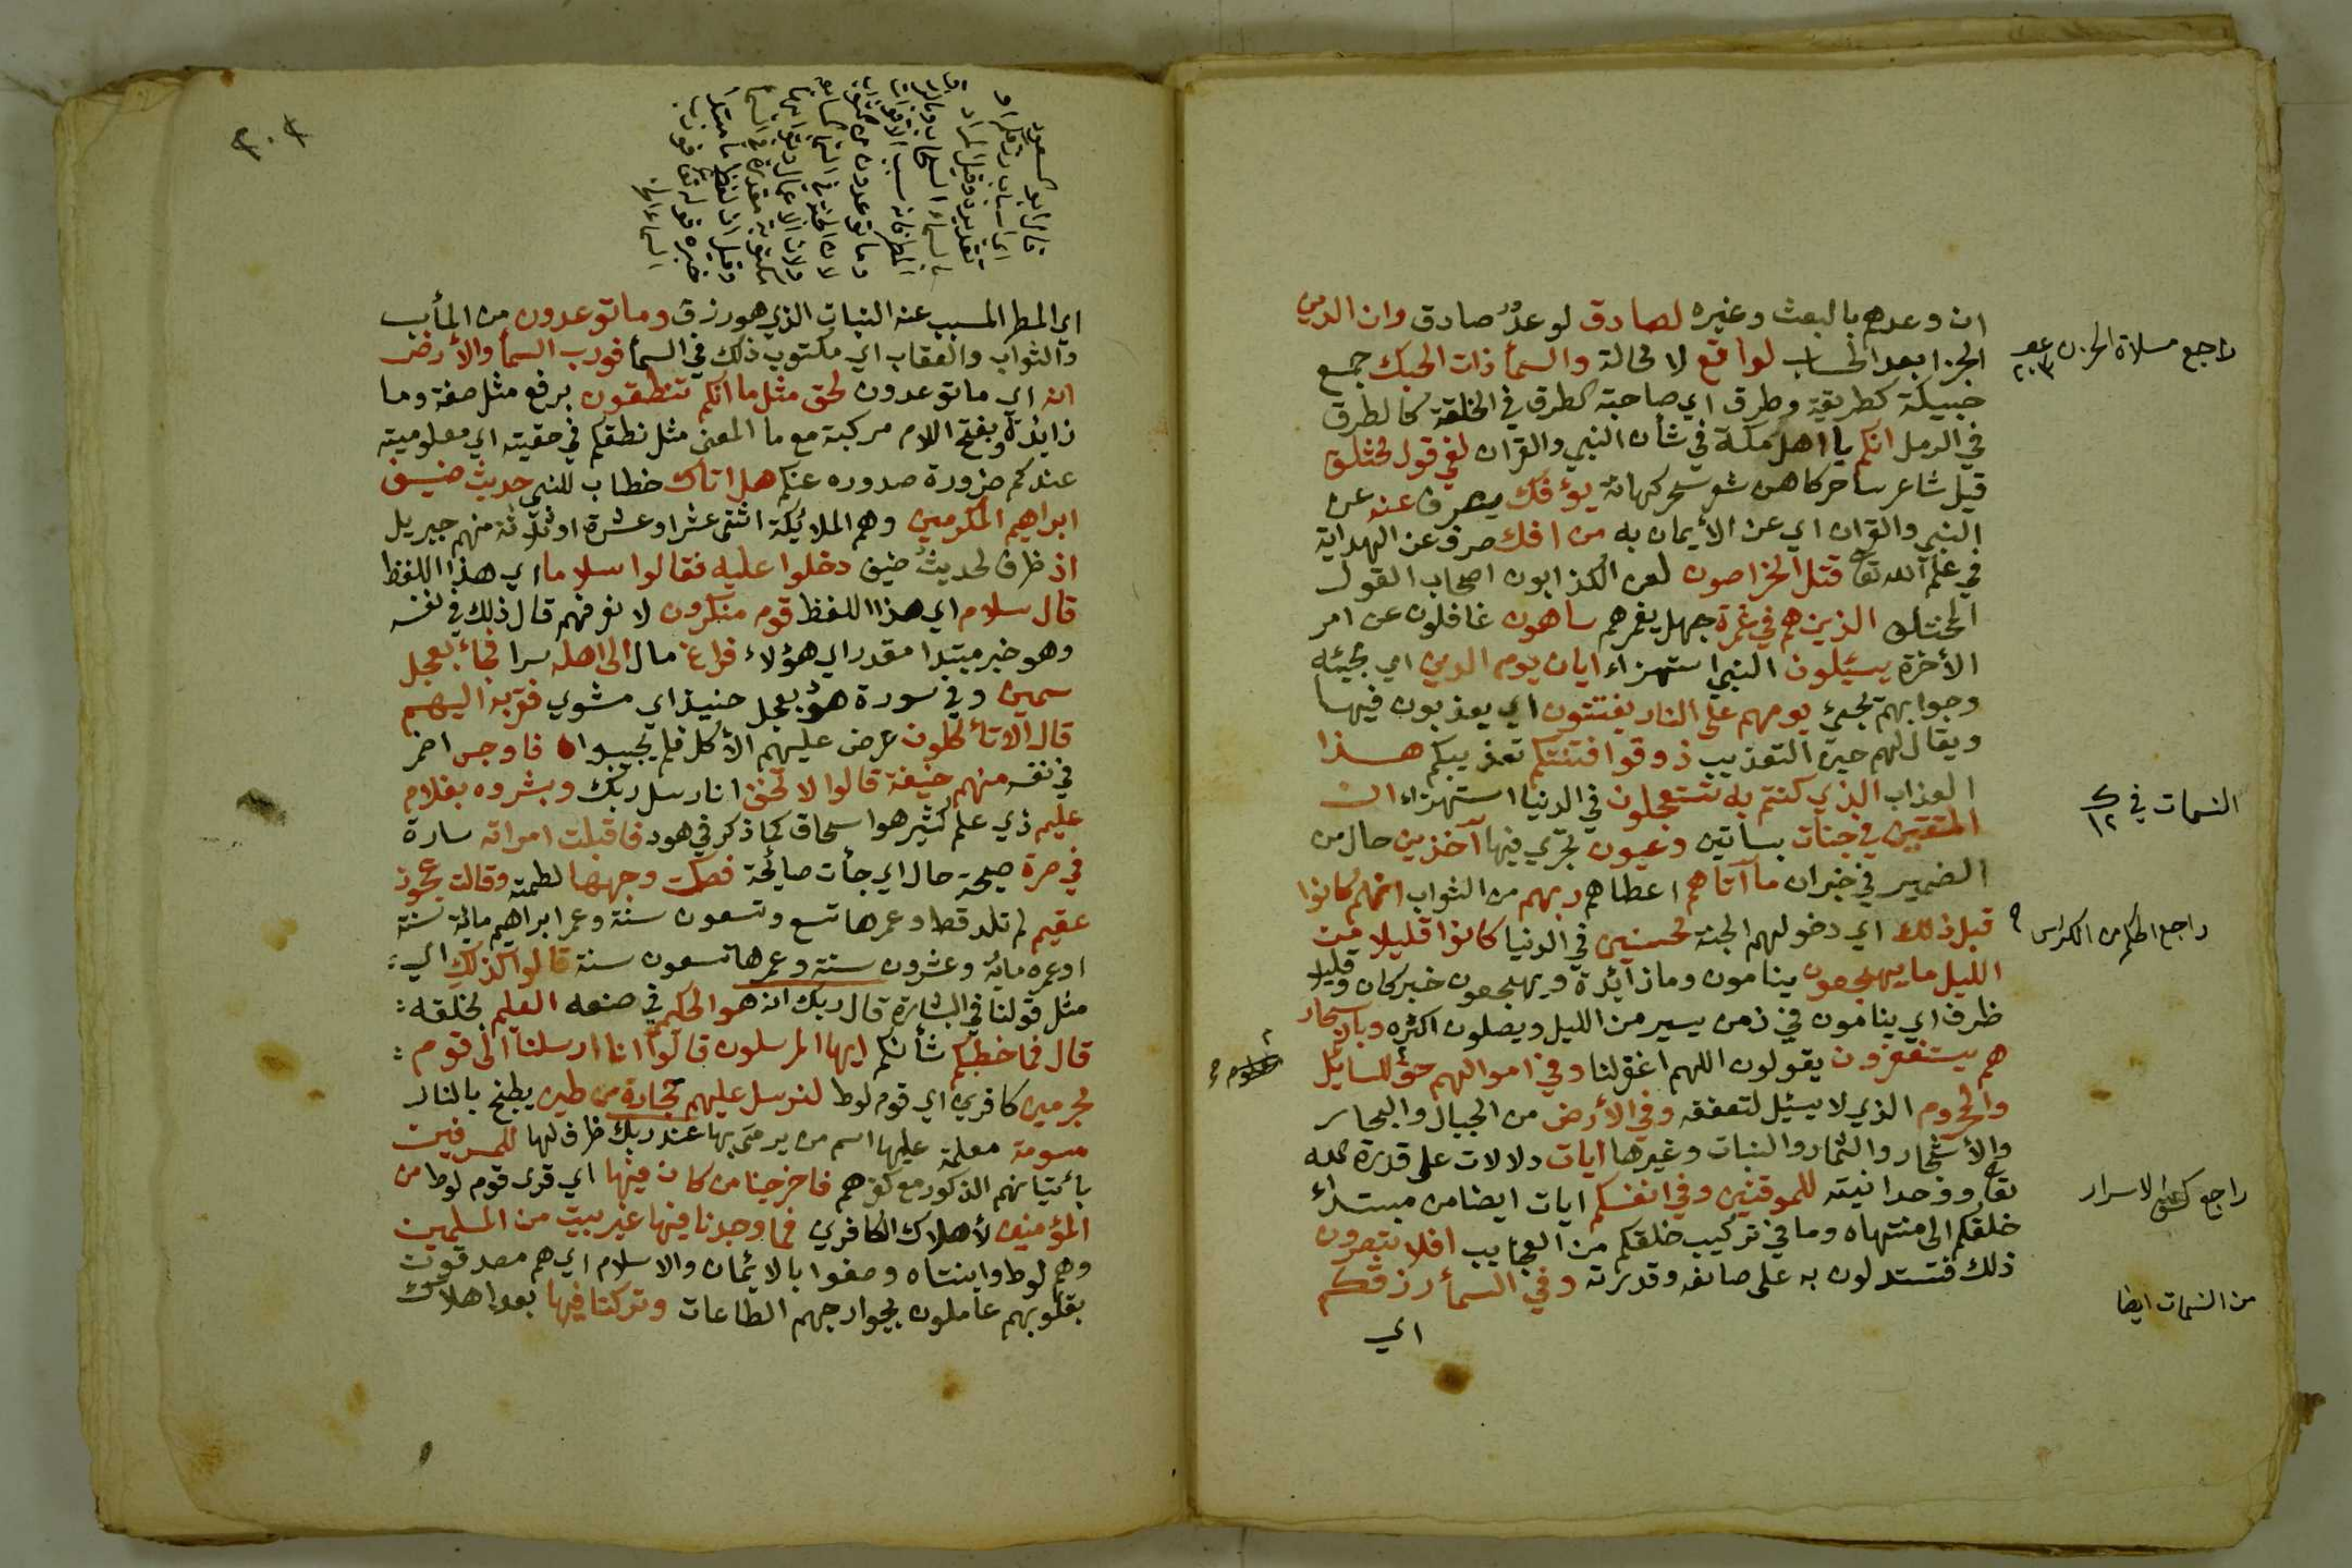 ان وعدهم بالبعث وغيره لصادق لوعد صادق وان الدين
الجزا بعد الحساب لواقع لا محالة والسمأ ذات الحبك جمع
حبيكة كطريقة وطرق اي صاحبة الطرق في الخلقة كالطرق
في الرمل انكم يا اهل مكة في شأن النبي والقران لفي قول مختلف
قيل شاعر ساحر كاهن شعر سحر كهانة يؤفك يصرف عنه عن
النبي والقران اي عن الأيمان به من افك صرف عن الهداية
في علم الله تعا قتل الخراصون لعن الكذابون اصحاب القول
المختلف الذين هم في غمرة جهل يغمرهم ساهون غافلون عن امر
الأخرة يسئلون النبي استهزاء ايان يوم الدين اي مجيئه
وجوابهم يجيئ يومهم على النار يفتنون اي يعذبون فيها
ويقال لهم حين التعذيب ذوقوا فتنتكم تعذيبكم هذا
العذاب الذي كنتم به تستعجلون في الدنيا استهزاء ان
المتقين في جنات بساتين وعيون تجري فيها آخذين حال من
الضمير في خبر ان ما آتاهم اعطاهم ربهم من الثواب انهم كانوا
قبل ذلك اي دخولهم الجنة محسنين في الدنيا كانوا قليلا من
الليل ما يهجعون ينامون وما زائدة ويهجعون خبر كان وقليلا
ظرف اي ينامون في زمن يسير من الليل ويصلون اكثره وبالاسحار
هم يستغفرون يقولون اللهم اغفر لنا وفي اموالهم حق للسايل
والمحروم الذي لا يسئل لتعففه وفي الأرض من الجبال والبحار
والأشجار والثمار والنبات وغيرها ايات دلالات على قدرة الله
تعا ووحدانيته للموقنين وفي انفسكم ايات ايضا من مبتداء
خلقكم الى منتهاه وما في تركيب خلقكم من العجايب افلا تبصرون
ذلك فتستدلون به على صانعه وقدرته وفي السمأ رزقكم
اي
راجع مسلاة الحزن
٢٠٣
النسمات في
١٢
راجع الحكم من الكراس ٩
راجع كشف الاسرار
من النسمات ايضا
٢٠٤
قال ابو السعود
اي اسباب رزقكم او
تقديره وقيل المراد
بالسماء السحاب وبالرزق
المطر فانه سبب الاقوات
وما توعدون من الثواب
لان الجنة في السماء
ولان الاعمال
مكتوبة مقدرة في السماء
وقيل ان لفظ ما مبتدا
خبره قوله تعا فورب
السماء الخ
اي المطر المسبب عنه النبات الذي هو رزق وما توعدون من المأب
والثواب والعقاب اي مكتوب ذلك في السمأ فورب السمأ والأرض
انه اي ما توعدون لحق مثل ما انكم تنطقون برفع مثل صفة وما
زايدة وبفتح اللام مركبة مع ما المعنى مثل نطقكم في حقيته اي معلوميته
عندكم ضرورة صدوره عنكم هل اتاك خطاب للنبي حديث ضيف
ابراهيم المكرمين وهم الملائيكة اثنى عشر او عشرة او ثلاثة منهم جبريل
اذ ظرف لحديث ضيف دخلوا عليه فقالوا سلاما اي هذا اللفظ
قال سلام اي هذا اللفظ قوم منكرون لا نعرفهم قال ذلك في نفسه
وهو خبر مبتدا مقدر اي هؤلاء فراغ مال الى اهله سرا فجاء بعجل
سمين وفي سورة هود بعجل حنيذ اي مشوي فقربه اليهم
قال الا تأكلون عرض عليهم الأكل فلم يجيبوا فاوجس اضمر
في نفسه منهم خيفة قالوا لا تخف انا رسل ربك وبشروه بغلام
عليم ذي علم كثير هو اسحاق كما ذكر في هود فاقبلت امراته سارة
في صرة صيحة حال اي جأت صايحة فصكت وجهها لطمته وقالت عجوز
عقيم لم تلد قط وعمرها تسع وتسعون سنة وعمر ابراهيم مائة سنة
او عمره مائة وعشرون سنة وعمرها تسعون سنة قالوا كذلك اي
مثل قولنا في البشارة قال ربك انه هو الحكيم في صنعه العليم بخلقه
قال فما خطبكم شأنكم ايها المرسلون قالوا انا ارسلنا الى قوم
مجرمين كافرين اي قوم لوط لنرسل عليهم حجارة من طين يطبخ بالنار
مسومة معلمة عليها اسم من يرمى بها عند ربك ظرف لها للمسرفين
بأتيانهم الذكور مع كفرهم فاخرجنا من كان فيها اي قرى قوم لوط من
المؤمنين لأهلاك الكافرين فما وجدنا فيها غير بيت من المسلمين
وهم لوط وابنتاه وصفوا بالايمان والاسلام اي هم مصدقون
بقلوبهم عاملون بجوارحهم الطاعات وتركنا فيها بعد اهلاك